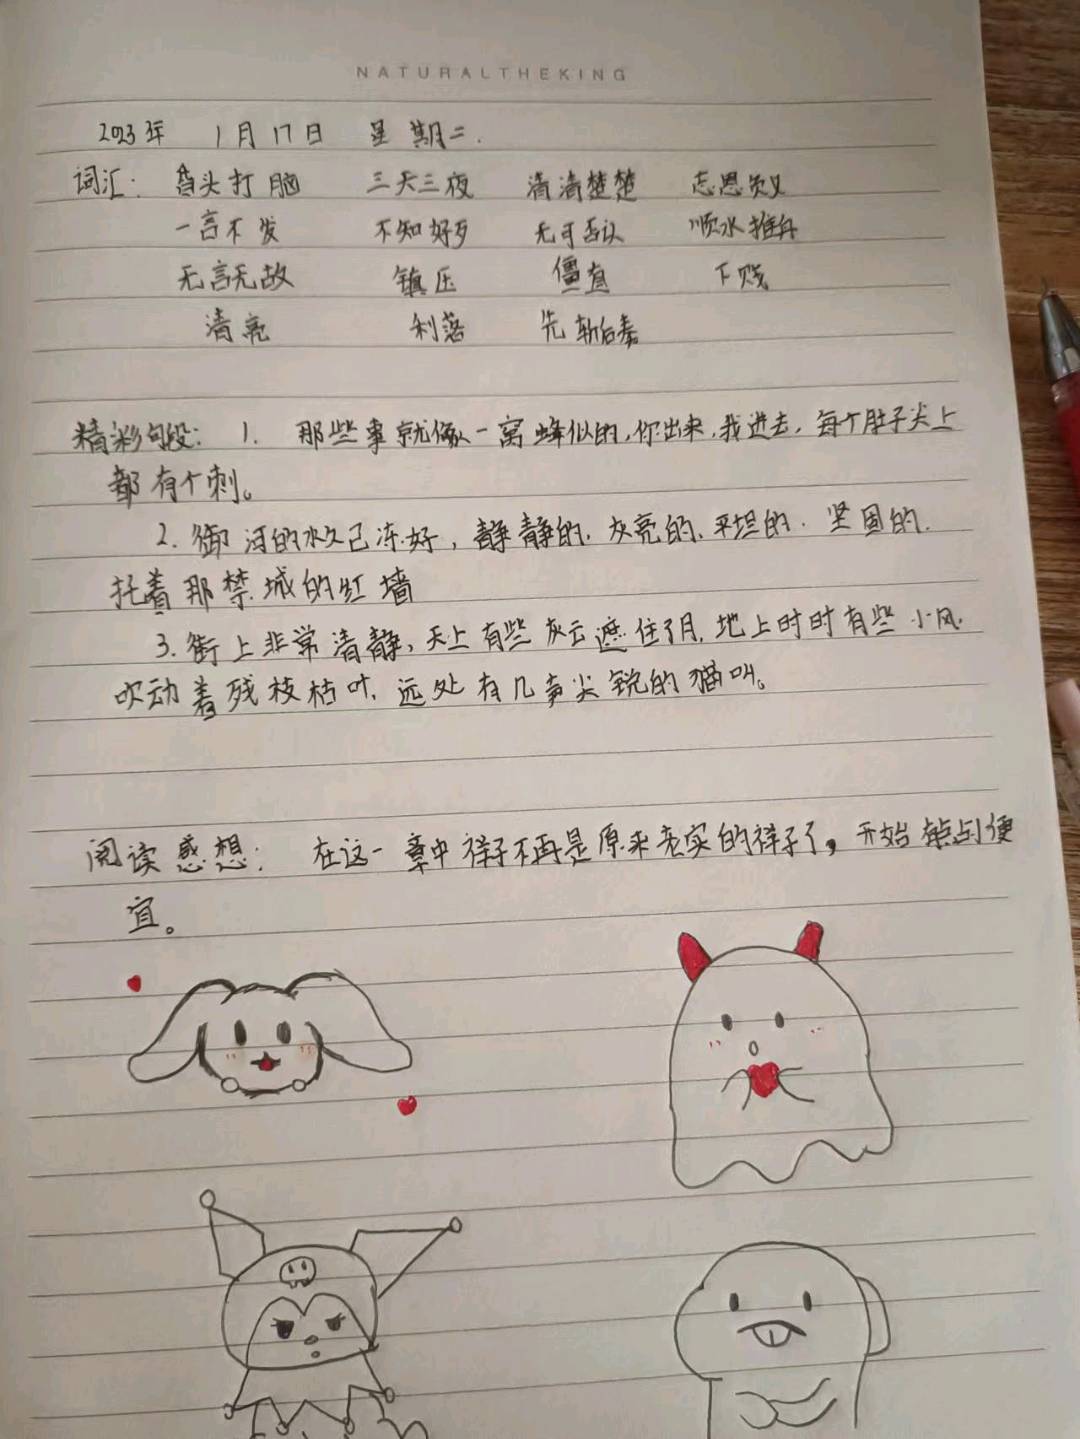 NATURALTHEKING
2023年 1月17日 星期二.
词汇: 昏头打脑 三天三夜 清清楚楚 忘恩负义
一言不发 不知好歹 无可否认 顺水推舟
无言无故 镇压 僵直 下贱
清亮 利落 先斩后奏
精彩句段: 1. 那些事就像一窝蜂似的,你出来,我进去,每个肚子尖上
都有个刺。
2. 御河的水久已冻好,静静的、灰亮的、平坦的、坚固的.
托着那禁城的红墙
3. 街上非常清静,天上有些灰云遮住了月,地上时时有些小风,
吹动着残枝枯叶,远处有几声尖锐的猫叫。
阅读感想: 在这一章中祥子不再是原来老实的祥子了,开始 占便
宜。